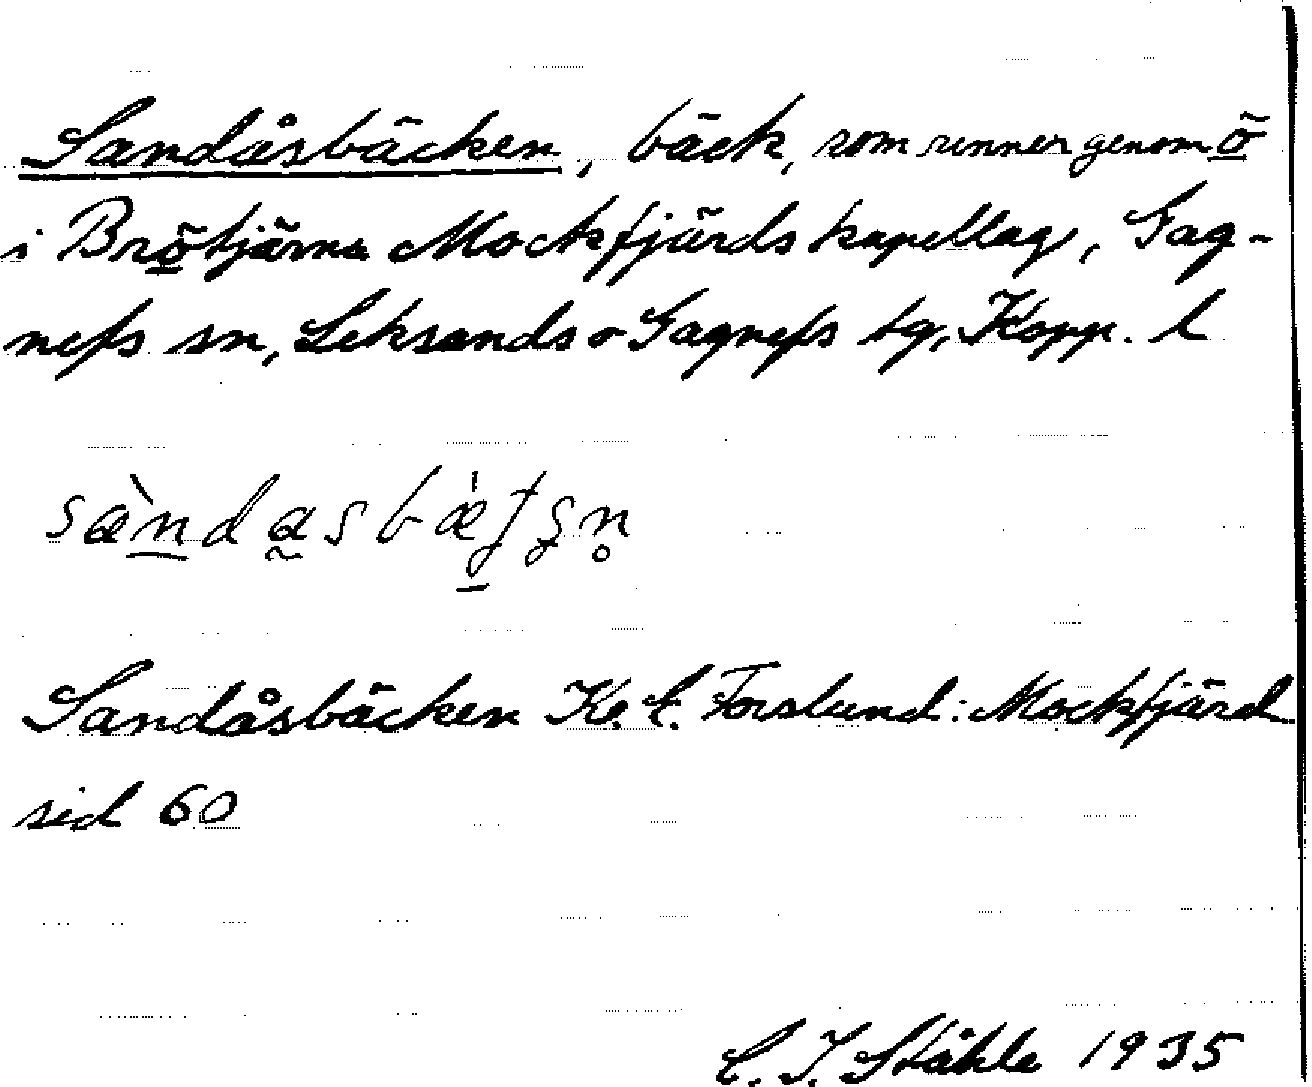 Sandåsbäcken, bäck, som rinner genom ö
i Brötjärna Mockfjärds kapellag, Gag-
nefs sn, Leksands o Gagnefs tg, Kopp. l
Sandåsbäcken K. E. Forslund: Mockfjärd
sid 60
C. I. Ståhle 1935